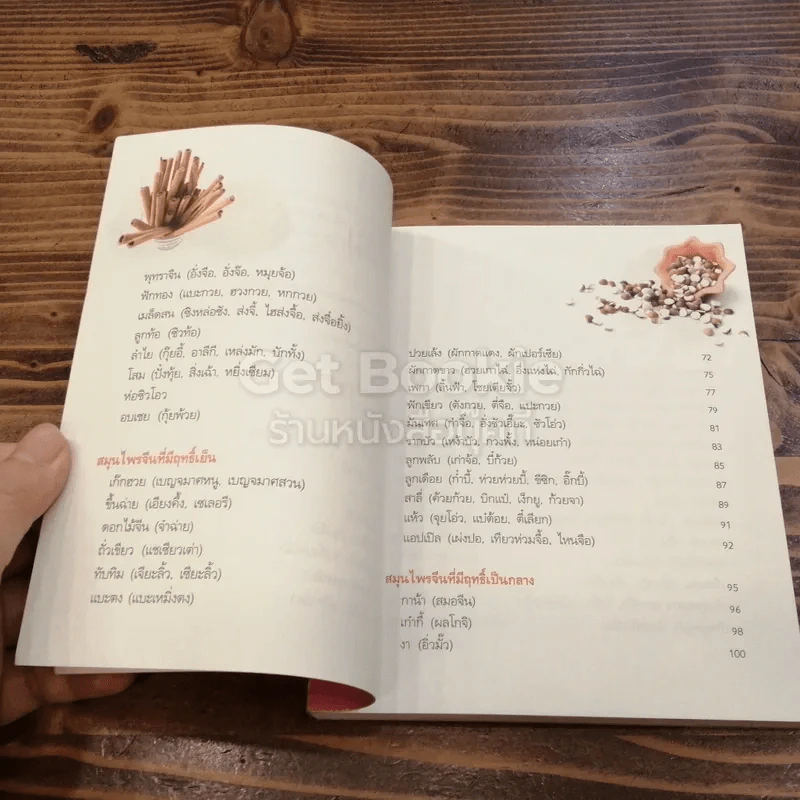 พุทราจีน (อั่งจือ, อั่งจ๊อ, หมุยจ้อ)
ฟักทอง (แบะกวย, ฮวงกวย, หกกวย)
เมล็ดสน (ซิงหล่อซัง, ส่งจี้, ไฮส่งจื้อ, ส่งจื่อยิ้ง)
ลูกท้อ (ซิวท้อ)
ลำไย (กุ๊ยอี้, อาลีกี, เหล่งมัก, บักทั้ง)
โสม (ปั่งทุ้ย, สิ่งเฉ้า, หยิ่งเซียม)
ห่อซิวโอว
อบเชย (กุ้ยพ้วย)
สมุนไพรจีนที่มีฤทธิ์เย็น
เก๊กฮวย (เบญจมาศหนู, เบญจมาศสวน)
ขึ้นฉ่าย (เอียงคึ้ง, เซเลอรี)
ดอกไม้จีน (จำฉ่าย)
ถั่วเขียว (แชเซียวเต่า)
ทับทิม (เจียะลิ้ว, เซียะลิ้ว)
แบะตง (แบะเหมิ่งตง)
ปวยเล้ง (ผักกาดแดง, ผักเปอร์เซีย) 72
ผักกาดขาว (ฮวยเกาไฉ่, อึ่งแห่งไฉ่, กักกิ่วไฉ่) 75
เพกา (ลิ้นฟ้า, โซยเตียจั้ว) 77
ฟักเขียว (ตังกวย, ตี่จือ, แปะกวย) 79
มันเทศ (กำจื๊อ, อั่งซัวเอี๊ยะ, ซัวโอ่ว) 81
รากบัว (เหง้าบัว, กวงพ้ง, หน่อยเก๋า) 83
ลูกพลับ (เก่าจ้อ, บี่ก้วย) 85
ลูกเดือย (กำบี้, ห่วยห่วยบี้, ขีซิก, อิ๊กบี้) 87
สาลี่ (ค้วยก้วย, บิกแป๋, เง็กยู, ก้วยจา) 89
แห้ว (จุยโอ่ว, แบ่ต้อย, ตี่เลียก) 91
แอปเปิล (เผ่งปอ, เทียวห่วมจื้อ, ไหนจือ) 92
สมุนไพรจีนที่มีฤทธิ์เป็นกลาง 95
กาน้า (สมอจีน) 96
เก๋ากี้ (ผลโกจิ) 98
งา (อิ่วมั้ว) 100
Get Bookie
ร้านหนังสือกู้ดที่